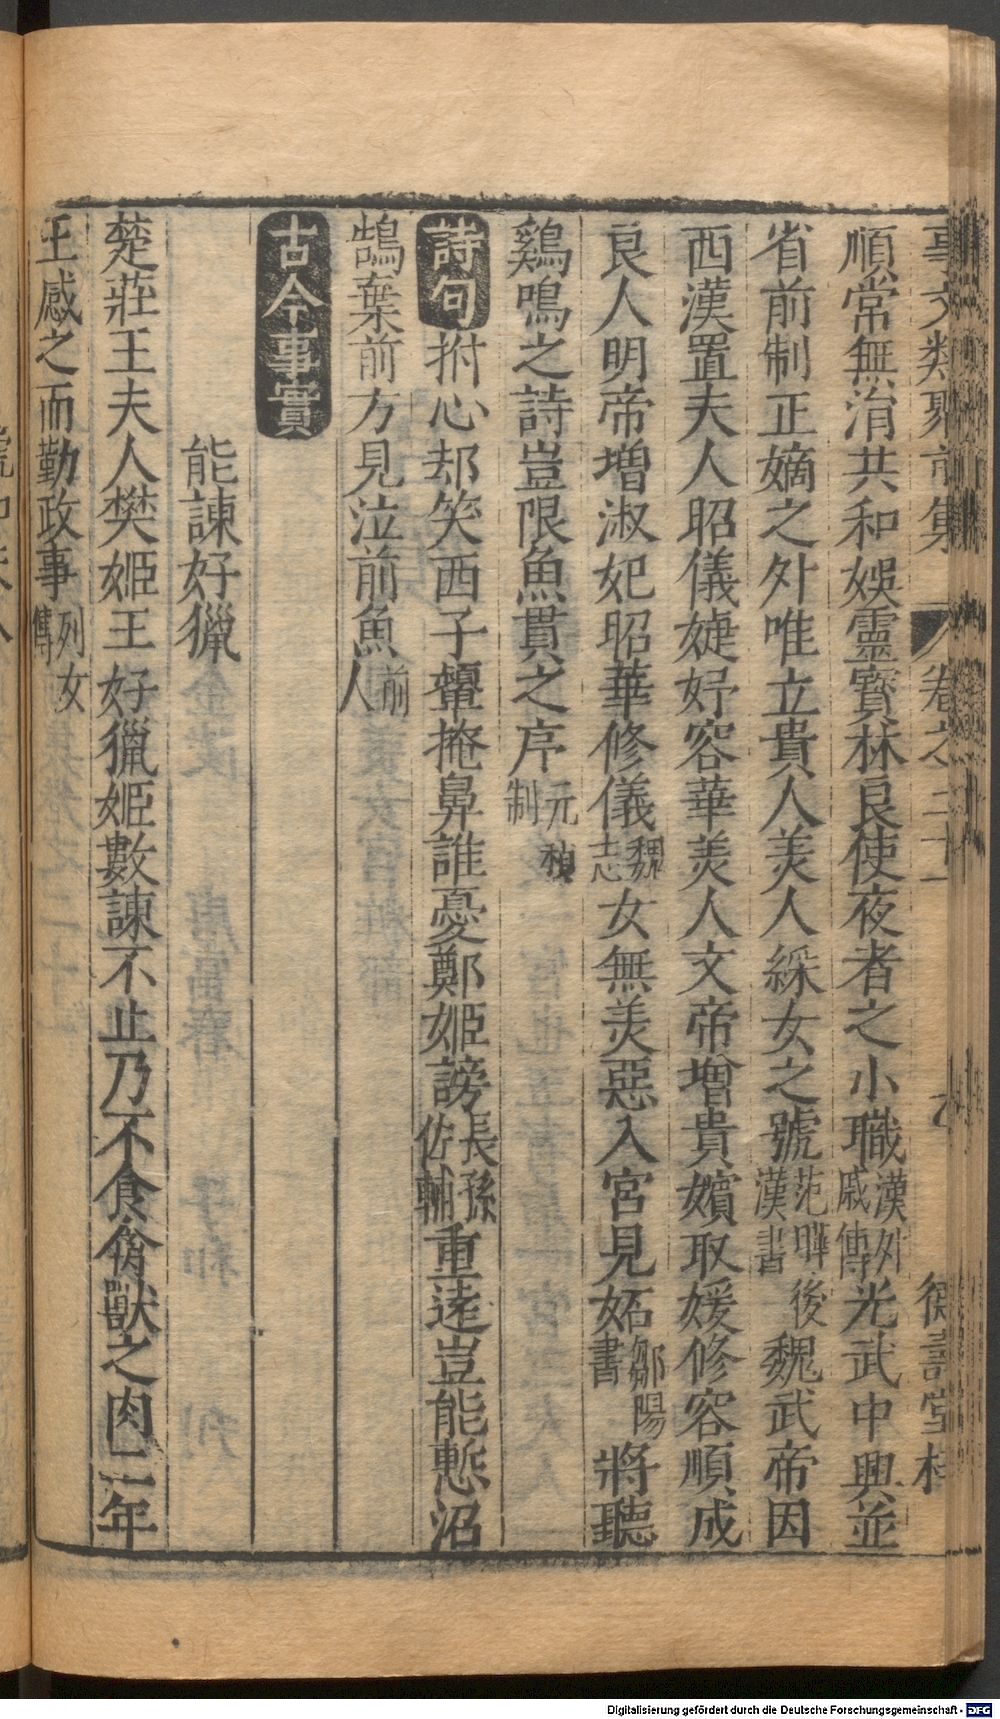 事文類聚前集 卷之二十一 德壽堂梓
順常無涓共和娛靈寳林良使夜者之小職漢外戚傳光武中興並
省前制正嫡之外唯立貴人羙人綵女之號范曄後漢書魏武帝因
西漢置夫人昭儀婕妤容華羙人文帝增貴嬪淑媛修容順成
良人明帝增淑妃昭華修儀魏志女無羙惡入宮見妬鄒陽書將聽
鷄鳴之詩豈限魚貫之序元稹制
詩句 拊心却笑西子顰掩鼻誰憂鄭姬謗長孫佐輔重逺豈能慙沼
鵠棄前方見泣前魚前人
古今事實
能諫好獵
楚莊王夫人樊姬王好獵姬數諫不止乃不食禽獸之肉二年
王感之而勤政事列女傳
Digitalisierung gefördert durch die Deutsche Forschungsgemeinschaft - DFG